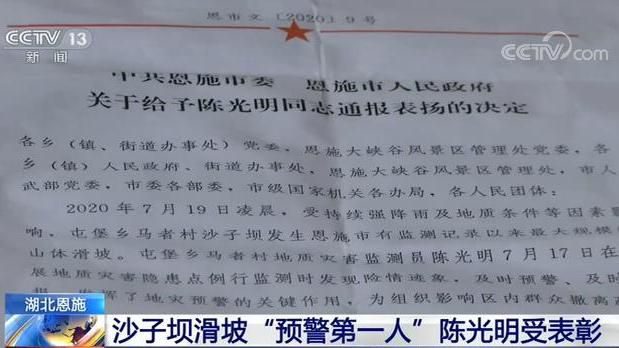 CCTV 13
新闻
CCTV.com
恩市文〔2020〕9号
中共恩施市委 恩施市人民政府
关于给予陈光明同志通报表扬的决定
各乡(镇、街道办事处)党委,恩施大峡谷风景区管理处党委,各
乡(镇)人民政府、街道办事处,恩施大峡谷风景区管理处,市人
武部党委,市委各部委,市级国家机关各办局,各人民团体:
2020年7月19日凌晨,受持续强降雨及地质条件等因素
响,屯堡乡马者村沙子坝发生恩施市有监测记录以来最大规模
山体滑坡。屯堡乡马者村地质灾害监测员陈光明7月17日在
展地质灾害隐患点例行监测时发现险情迹象,及时预警、及
发挥了地灾预警的关键作用,为组织影响区内群众撤离
湖北恩施
沙子坝滑坡“预警第一人”陈光明受表彰